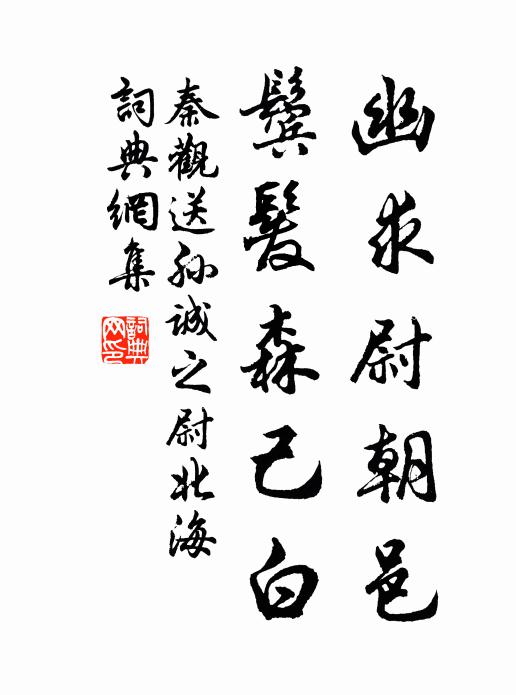 幽求尉朝邑
鬓髮森已白
秦觀送孫誠之尉北海
詞典網集
詞典网印